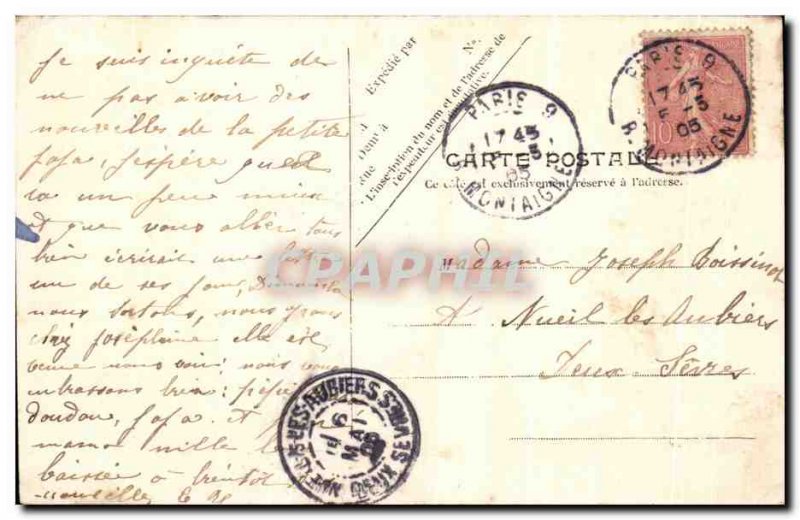 Je suis inquiète de
ne pas avoir des
nouvelles de la petite
fafa, j'espère qu'el
va un peu mieux
et que vous allez tous
bien écrirait une
un de ses jours, Dimanche
nous sortons, nous
chez Joséphine elle est
venue nous voir; nous vous
embrassons bien: pépé
doudou, fafa. A
mama mille
baisée à bientôt
nouvelles
Expédié par
No.
à
Dept à
Rue
L'inscription du nom et de l'adresse de
l'expéditeur est facultative.
PARIS 9
17 45
5 -5
05
R. MONTAIGNE
PARIS 9
17 45
5 -5
05
R. MONTAIGNE
10
CARTE POSTALE
Ce côté est exclusivement réservé à l'adresse.
CPAPHIL
Madame Joseph Boissinot
A Nueil les Aubiers
Deux-Sèvres
NUEIL-S-LES-AUBIERS
6
MAI
05
DEUX SEVRES